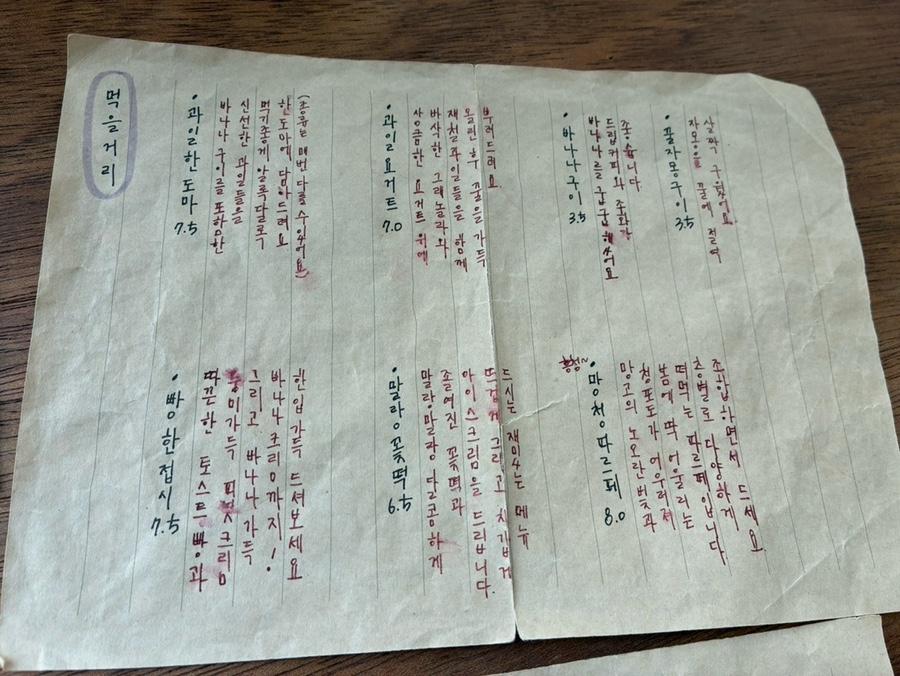 먹을거리
• 과일한도마
7.5
바나나 구이를 포함한
신선한 과일들을
먹기좋게 알록달록
한도마에 담아드려요
(종류는 매번 다를 수 있어요)
• 과일요거트
7.0
상큼한 요거트 위에
바삭한 그래놀라와
제철과일들을 함께
올린후 꿀을 가득
뿌려드려요
• 바나나구이
3.5
바나나를 굽굽했어요
드립커피와 조화가
좋습니다
• 꿀자몽구이
3.5
자몽을 꿀에 절여
살짝 구웠어요
• 빵한접시
7.5
따끈한 토스트빵과
풍미가득 피넛크림
그리고 바나나 가득
바나나크림까지!
한입가득 드셔보세요
• 말랑꽃떡
6.5
말랑말랑 달콤하게
졸여진 꽃떡과
아이스크림을 드립니다.
뜨겁게 그리고 차갑게
드시는 재미있는 메뉴
• 망청파르페
8.0
망고의 노오란빛과
청포도가 어우러져
봄에 딱 어울리는
떠먹는 파르페입니다
층별로 다양하게
조합하면서 드세요.